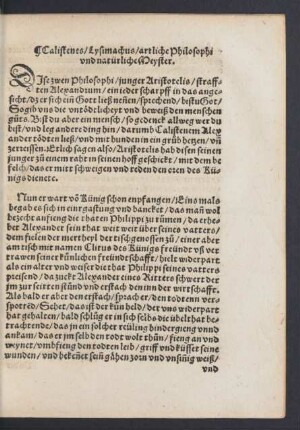 ¶ Calistenes / Lysimachus / artliche Philosophi
vnd natürliche Meyster.
DIse zwen Philosophi / junger Aristotelis / straff-
ten Alexandrum / ein ieder scharpff in das ange-
sicht / dz er sich ein Gott ließ neñen / sprechend / bistu Got /
So gib vns die vntödlicheyt vnd bewciß den menschen
güts. Bist du aber ein mensch / so gedenck allweg wer du
bist / vnd leg andere ding hin / darumb Calistenem Alex
ander tödten ließ / vnd mit hunden in ein grůb hetzen / vñ
zerreissen. Etlich sagen also / Aristotelis hab disen seinen
junger zů einem raht in seinen hoff geschickt / mit dem be
felch / das er mitt schweigen vnd reden den oren des Kü-
nigs dienete.
Nun er wart võ Künig schon empfangen / Eins mals
begab es sich in ein gastung vnd bancket / das mañ wol
bezecht anfieng die thaten Philippi zů rümen / da erhůb
ber Alexander sein that weit weit über seines vatters /
dem fulgen der merthepl der tischgenossen zů / einer aber
am tisch mit namen Clitus des Künigs freündt vß ver
trawen seiner künlichen freündtschafft / hielt widerpart
als ein alter vnd weiser die that Philippi seines vatters
preisend / da zuckt Alexander eines Ritters schwert der
jm zur seitten stünd vnd erstach den inn der wirtschafft.
Als bald er aber den erstach / sprach er / den todten ver
spottend / Sehet / das ist der kün held / der vns widerpart
hat gehalten / bald schlůg er in sich selbs die übelthat be
trachtende / das jm ein solcher reüling hindergieng vnnd
ankam / das er jm selb den todt wolt thůn / fieng an vnd
weynet / vmbfieng den todten leib / griff vnd küsset seine
wunden / vnd bekeñet sein gähen zorn vnd vnsinnig weiß /
vnd